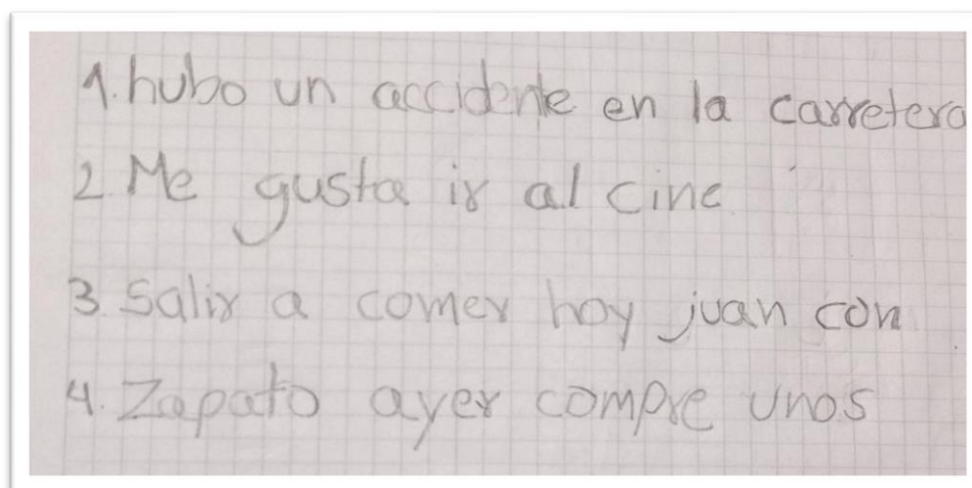 1. hubo un accidente en la carretera
2 Me gusta ir al cine
3. Salir a comer hoy juan con
4. Zapato ayer compre unos